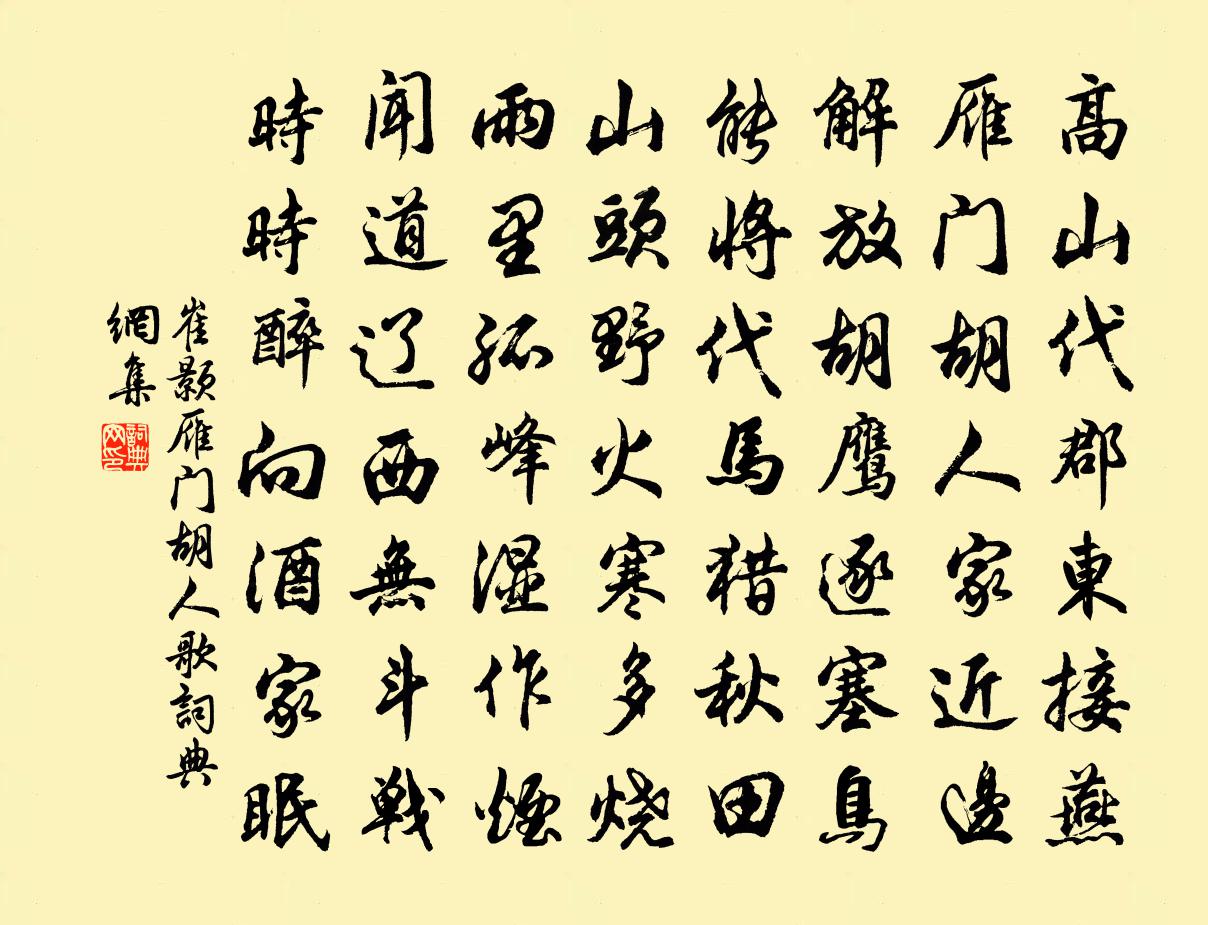 高山代郡東接燕
雁门胡人家近邊
解放胡鹰逐塞鳥
能將代馬猎秋田
山頭野火寒多烧
雨里孤峰湿作煙
闻道辽西無斗戰
時時醉向酒家眠
崔颢雁门胡人歌詞典
網集
詞典
网印